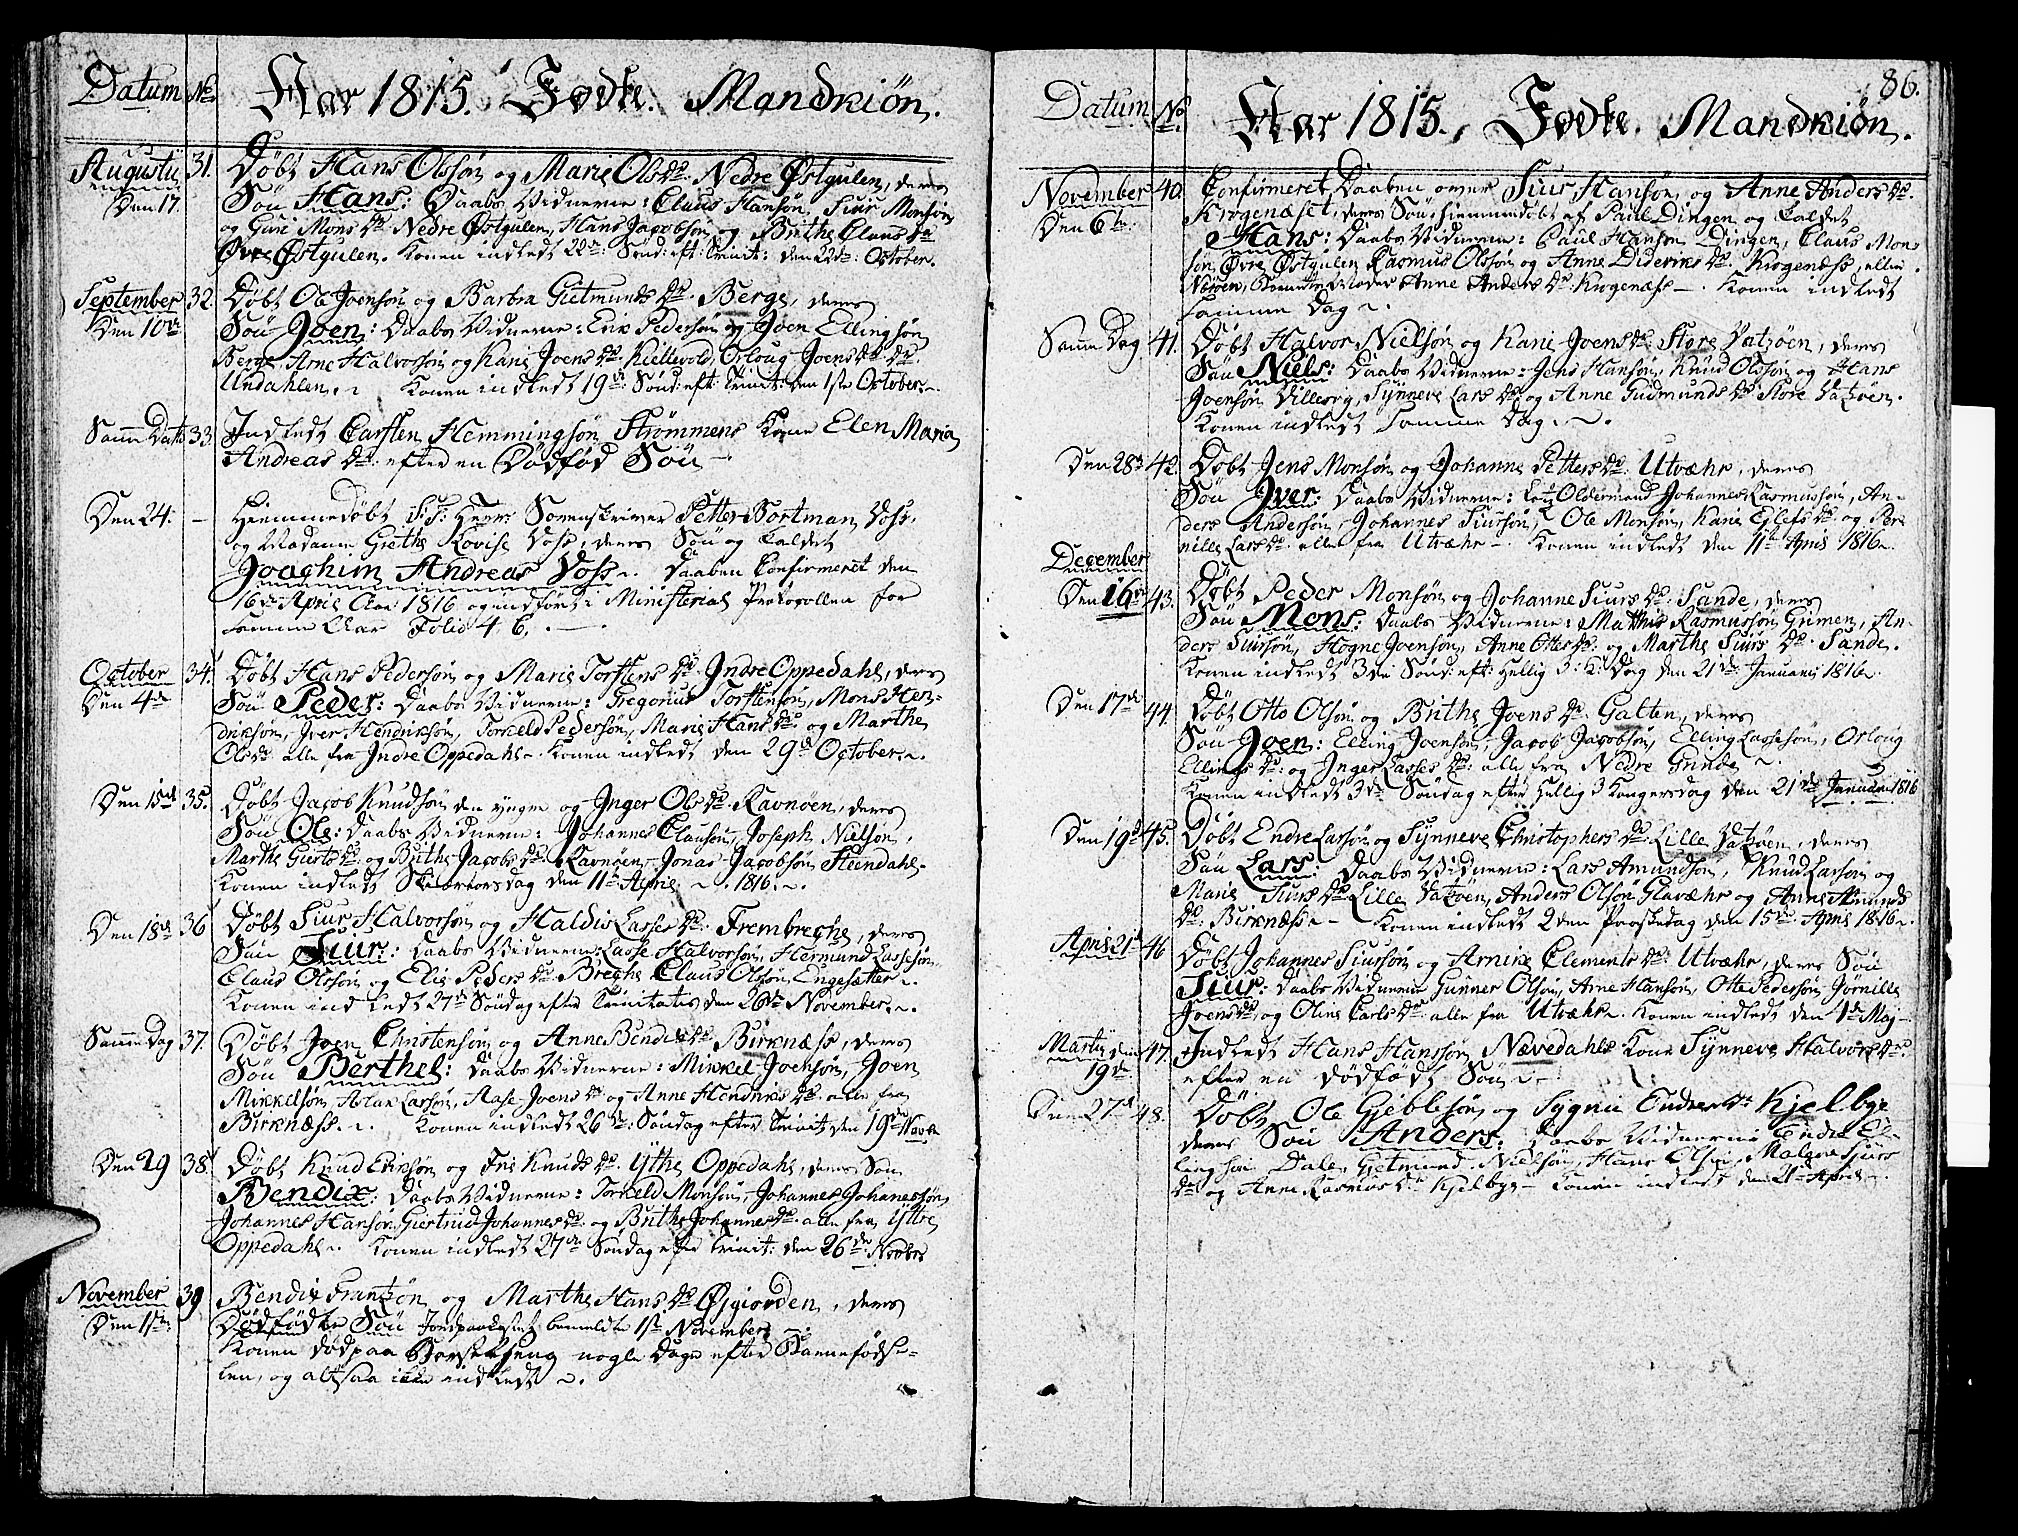 Datum No Aar 1815. Fødte. Mandkiøn.
Augusti 31. Døbt Hans Olssøn og Marie Olsdr. Nedre Østgulen, deres
Den 17 Søn Hans: Daabs Vidnerne: Claus Hansøn, Siur Monsøn
og Guri Mons dr. Nedre Østgulen, Hans Jacobsøn og Brithe Claus dr
Øvre Østgulen. Konen indledt 22de Sønd: eft: Trinit: den 22de: October.
September 32. Døbt Ole Joensøn og Barbra Gietmunds dr. Berge, deres
Den 10de Søn Joen: Daabs Vidnerne: Erik Pedersøn og Joen Ellingsøn
Berge, Arne Halvorsøn og Kari Joens dr. Kiellevold, Orloug Joens dr
Undahlen. Konen indledt 19de Sønd: eft: Trinit: den 1ste October.
Samme Dato 33. Indledt Carsten Hemmingsøn Strømmens Kone Elen Maria
Andreas dr: efter en Dødfød Søn
Den 24. – Hiemmedøbt S: T: Herr Sorenskriver Petter Bortman Voss,
og Madame Grethe Lovise Voss, deres Søn og kaldet
Joachim Andreas Voss. Daaben Confirmeret den
16de April Aar 1816 og indført i Ministerial Protokollen for
samme Aar Folio 4, 6.
October 34. Døbt Hans Pedersøn og Marie Torstens dr. Indre Oppedahl, deres
Den 4de Søn Peder: Daabs Vidnerne: Gregorius Torstensøn, Mons Hen-
driksøn, Iver Hendriksøn, Torkeld Pedersøn, Marie Hans dr. og Marthe
Olsdr alle fra Indre Oppedahl. Konen indledt den 29de October.
Den 15de 35. Døbt Jacob Knudsøn den yngre og Inger Ols dr. Ravnøen, deres
Søn Ole: Daabs Vidnerne: Johannes Clausøn, Joseph Nielsøn,
Marthe Giertsdr. og Brithe Jacobs dr. Ravnøen, Jonas Jacobsøn Steendahl.
Konen indledt Skiertorsdag den 11te April 1816.
Den 18de 36 Døbt Siur Halvorsøn og Haldis Lasses dr. Frembrecke, deres
Søn Siur: Daabs Vidnerne: Lasse Halvorsøn, Hermund Lassesøn,
Claus Olssøn og Elie Peders dr. Brecke, Claus Olsøn Engesætter.
Konen indledt 27de Søndag efter Trinitatis den 26de November.
Samme Dag 37. Døbt Joen Christensøn og Anne Bendixdr. Birknæss, deres
Søn Berthel: Daabs Vidnerne: Mikkel Joensøn, Joen
Mikkelsøn, Aslak Larsøn, Aase Joens dr og Anne Hendriks dr. alle fra
Birknæss. Konen indledt 26de: Søndag efter Trinit den 19de Novbr
Den 29 38. Døbt Knud Eriksøn og Fris Knuds dr. Ytre Oppedahl, deres Søn
Bendix: Daabs Vidnerne: Torkeld Monsøn, Johannes Johannessøn,
Johannes Hansøn, Giertrud Johannes dr. og Brithe Johannes dr. alle fra Ytre
Oppedahl. Konen indledt 27de Søndag efter Trinit: den 26de Novbr
November 39 Bendix Frantzøn og Marthe Hans dr. Øygiorden, deres
Den 1ste Dødfødte Søn Jordpaakastet bemeldte 1ste November.
Konen død paa Barselseng nogle Dage efter Barnefødse-
len, og altsaa ikke indledt.
86.
Datum No Aar 1815. Fødte. Mandkiøn.
November 40. Confirmeret Daaben over Siur Hansøn og Anne Anders dr.
Den 6te Krogenæset, deres Søn, hiemmedøbt af Paul Dingen og kaldet
Hans: Daabs Vidnerne: Paul Hansøn Dingen, Claus Mon-
søn Øvre Østgulen, Rasmus Olssøn og Anne Dideriks dr. Krogenæss, ellen
Anne Anders dr. Krogenæss. Konen indledt
samme Dag.
Samme Dag 41. Døbt Halvor Nielsøn og Kari Joensdr. Store Hatzøen, deres
Søn Niels: Daabs Vidnerne: Jens Hansøn, Knud Olssøn og Hans
Joensøn Villesvg, Synneve Lars dr. og Anne Gudmunds dr. Store Hatzøen.
Konen indledt Samme Dag.
Den 28de 42. Døbt Jens Monsøn og Johanne Petters dr. Utvæhr, deres
Søn Iver: Daabs Vidnerne: Oldermand Johannes Rasmussøn, An-
ders Andersøn, Johannes Siursøn, Ole Monsøn, Kari Eylefs dr. og Per-
nille Lars dr. alle fra Utvæhr. Konen indledt den 11te April 1816.
December
Den 16de 43. Døbt Peder Monsøn og Johanne Siurs dr. Sande, deres
Søn Mons: Daabs Vidnerne: Matthis Rasmussøn Grimen, An-
ders Siursøn, Hogne Joensøn, Anne Ottes dr. og Marthe Siurs dr. Sande.
Konen indledt 3die Sønd: eft: Hellig 3 K: Dag den 21de Januarii 1816.
Den 17de 44. Døbt Otto Olsøn og Brithe Joens dr. Galten, deres
Søn Joen: Elling Joensøn, Jacob Jacobsøn, Elling Lassesøn, Orloug
Ellings dr. og Inger Lasses dr. alle fra Nedre Grinde.
Konen indledt 3de Søndag efter Hellig 3 Kongersdag den 21de Januarii 1816
Den 19de 45. Døbt Endre Larsøn og Synneve Christophers dr. Lille Hatzøen, deres
Søn Lars: Daabs Vidnerne: Lars Amundsøn, Knud Larsøn og
Marie Siurs dr. Lille Hatzøen, Anders Olsøn Glavæhr og Anne Amunds
dr. Birknæss. Konen indledt 2den Paaskedag den 15de April 1816.
April 21de 46 Døbt Johannes Siursøn og Arnike Clements dr. Utvæhr, deres Søn
Siur: Daabs Vidnerne Gunner Olsøn, Arne Hansøn, Otte Pedersøn, Jørnille
Joensdr. og Oline Carls dr. alle fra Utvæhr. Konen indledt den 1de Maj
Martii den 47. Indledt Hans Hanssøn Nævedahls Kone Synneve Halvors dr.
19de efter en dødfødt Søn.
Den 27de 48. Døbt Ole Gieblesøn og Sygni Endres dr Kjelbye
deres Søn Anders: Daabs Vidnerne Endre El-
lingsøn Dale, Gietmund Nielsøn, Hans Olsøn, Malene Sjurs
dr og Anne Rasmus dr. Kjelbye. Konen indledt den 21de April.